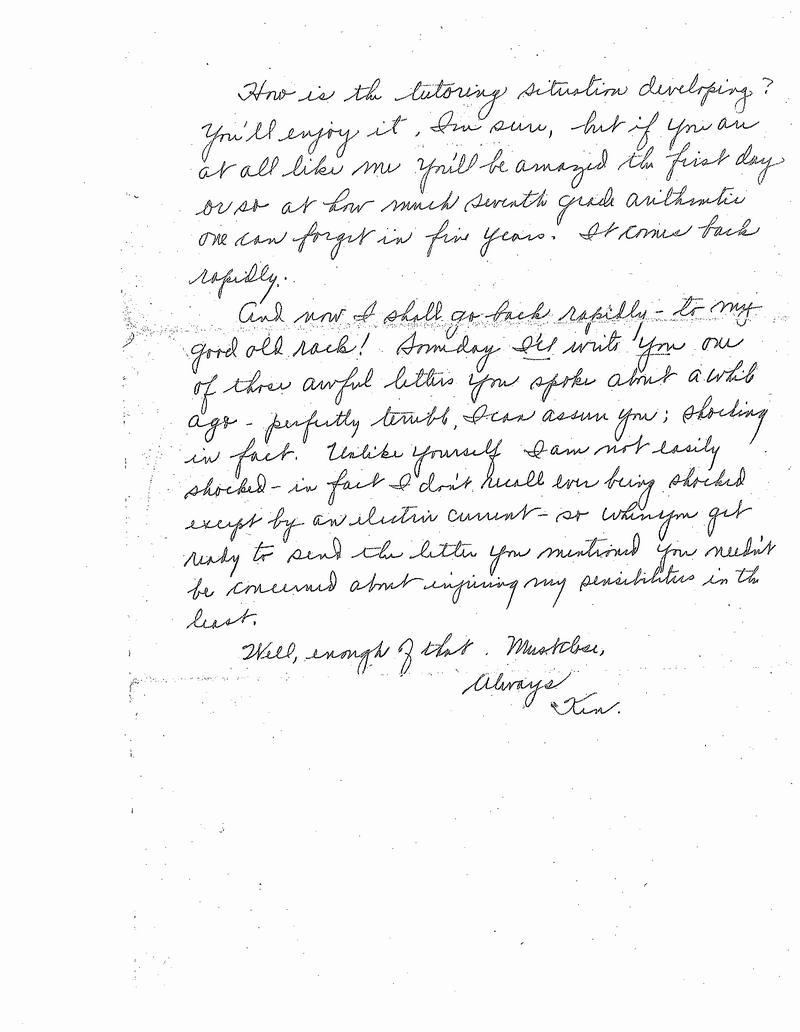 How is the tutoring situation developing?
You'll enjoy it, I'm sure, but if you are
at all like me you'll be amazed the first day
or so at how much seventh grade arithmetic
one can forget in five years. It comes back
rapidly.
And now I shall go back rapidly - to my
good old rack! Someday I'll write you one
of those awful letters you spoke about a while
ago - perfectly terrible, I can assure you; shocking
in fact. Unlike yourself I am not easily
shocked - in fact I don't recall ever being shocked
except by an electric current - so when you get
ready to send the letter you mentioned you needn't
be concerned about injuring my sensibilities in the
least.
Well, enough of that. Must close,
Always
Ken.